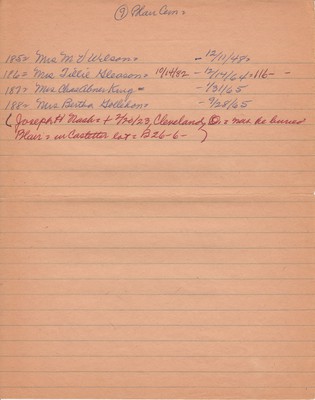 ⑨ Blair Cem=
185= Mrs M V Wilson= - 12/11/48=
186= Mrs Tillie Gleason= 10/14/82 - 12/14/64=116- -
187= Mrs Chas Abner King= - 7/31/65
188= Mrs. Bertha Gollihon= - 9/28/65
(Joseph H Nash= + 2/20/23, Cleveland, O.= may be buried
Blair= in Castetter lot= B26-6- )